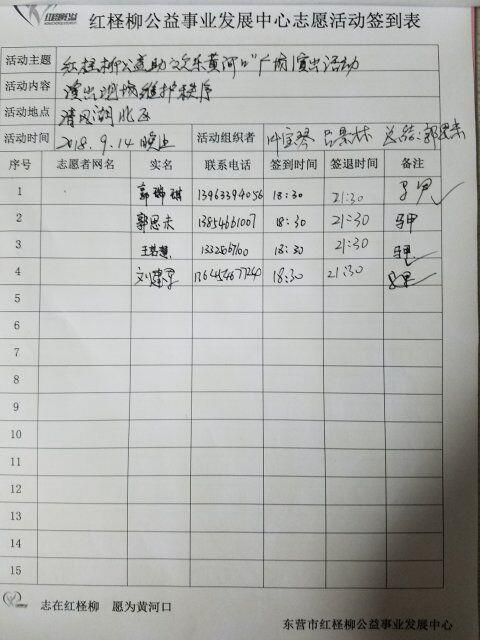 红柽柳公益事业发展中心志愿活动签到表
活动主题 红柽柳公益助力欢乐黄河口广场演出活动
活动内容 演出现场维护秩序
活动地点 清风湖北区
活动时间 2018.9.14晚上 活动组织者 总结:郭思未
序号 志愿者网名 实名 联系电话 签到时间 签退时间 备注
1 郭瑞祺 13963394056 18:30 21:30 马甲
2 郭思未 13854661007 18:30 21:30 马甲
3 18:30 21:30 马甲
4 刘建军 13645467724 18:30 21:30 马甲
5
6
7
8
9
10
11
12
13
14
15
志在红柽柳 愿为黄河口
东营市红柽柳公益事业发展中心